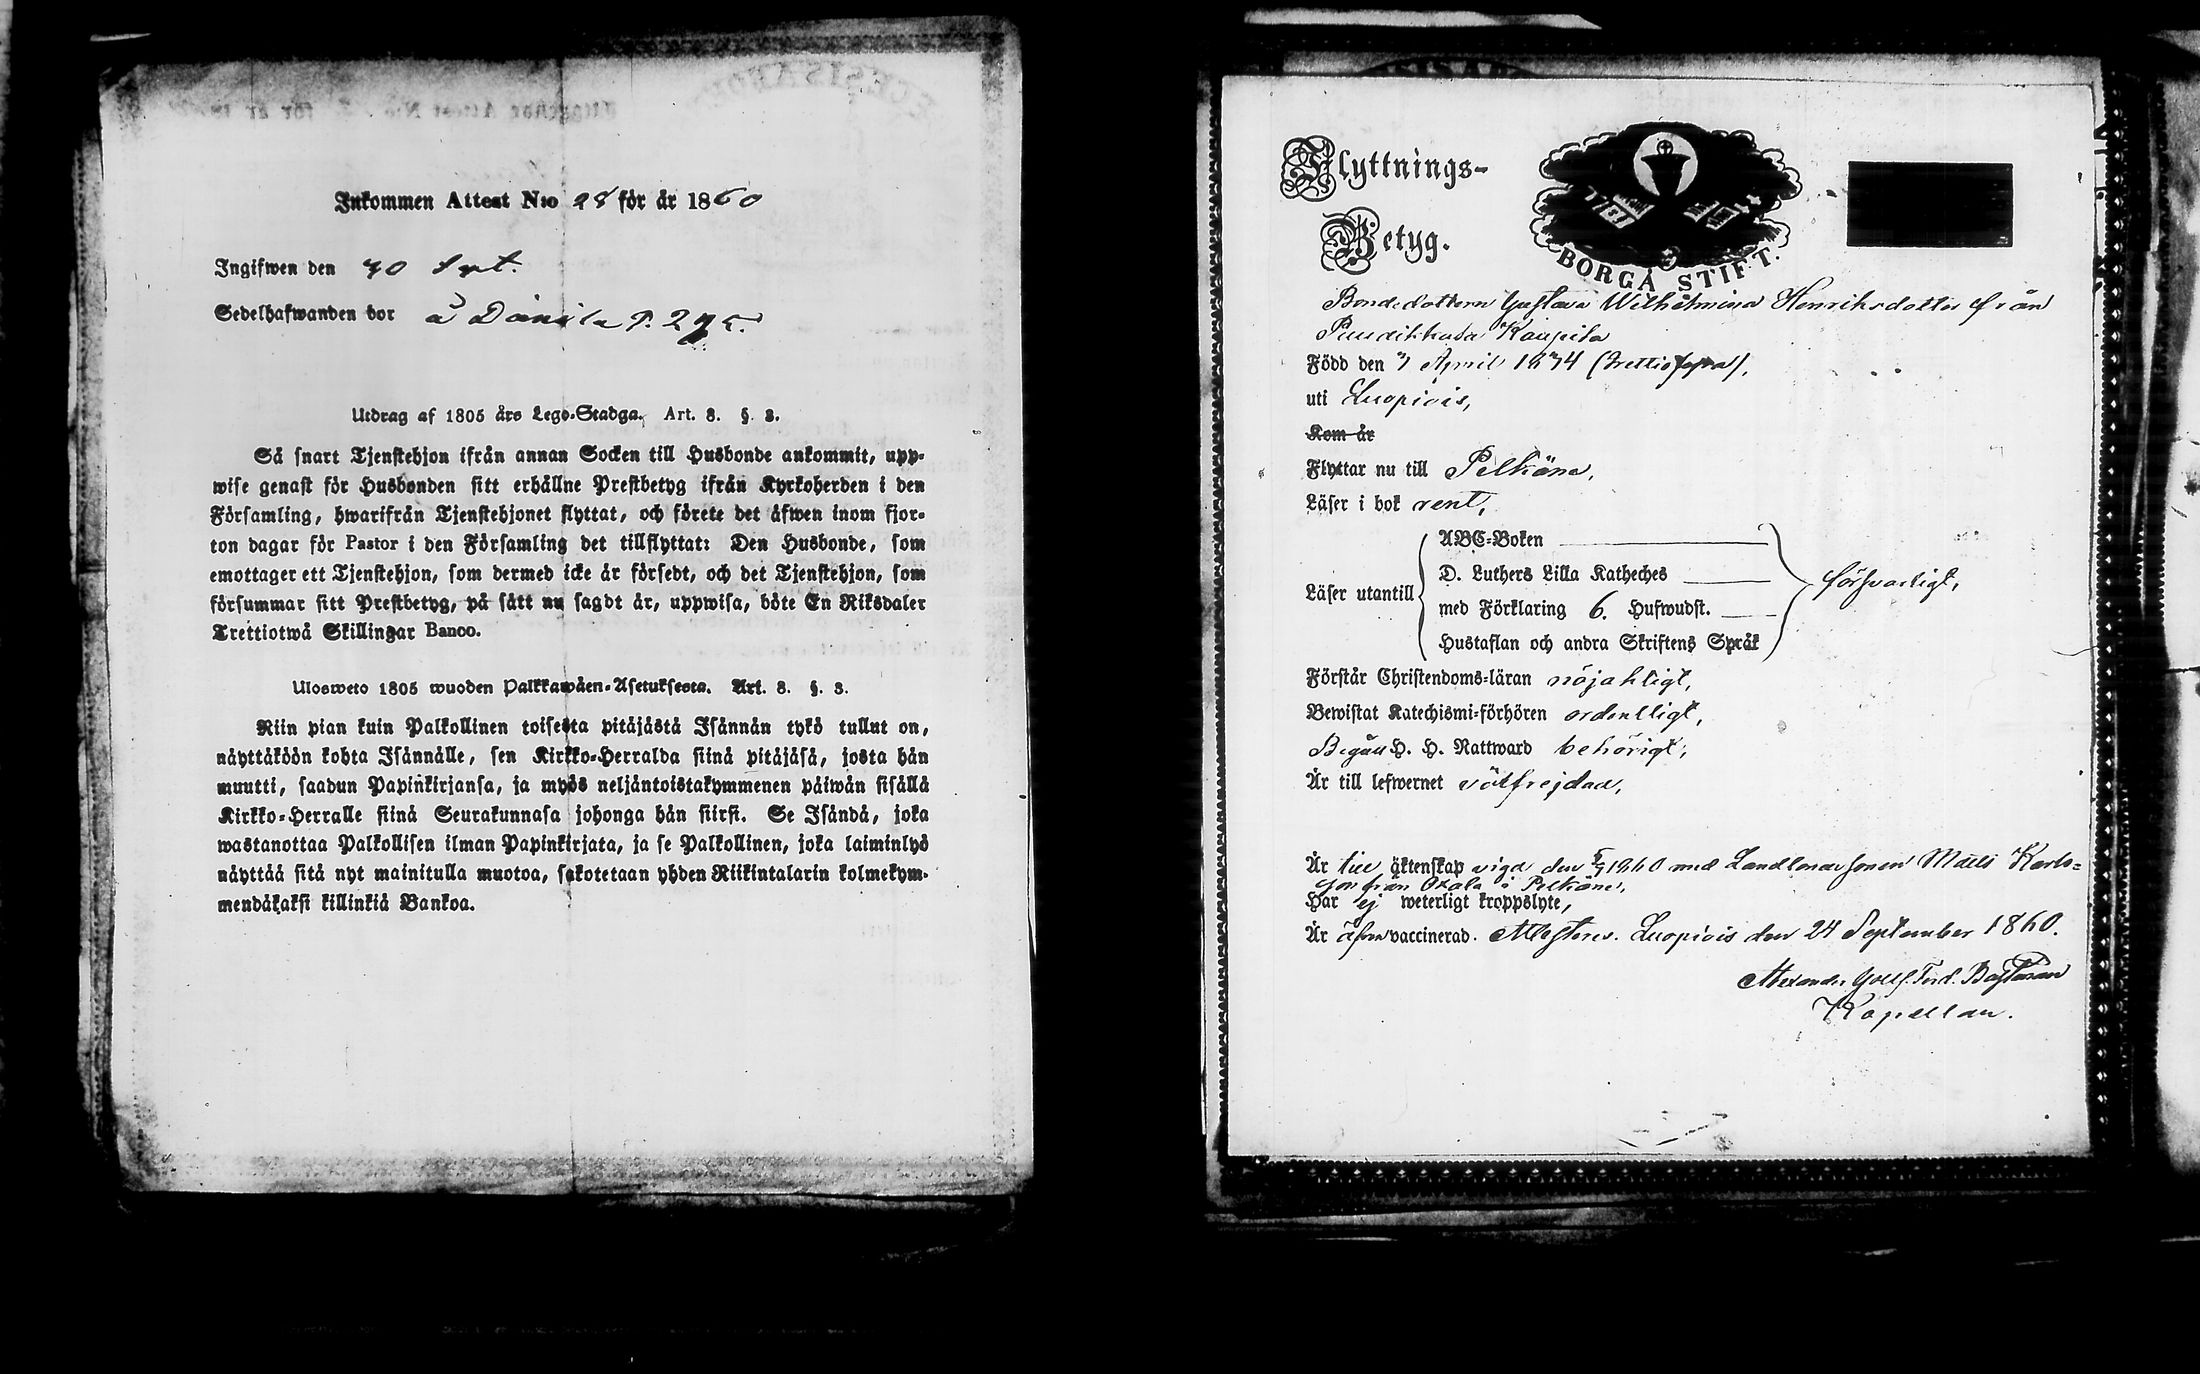 Inkommen Attest N:o 28 för år 1860
Ingifwen den 30 Sept.
Sedelhafwanden bor å Dänila P. 295.
Utdrag af 1805 års Lego-Stadga, Art. 8. §. 3.
Så snart Tjenstehjon ifrån annan Socken till Husbonde ankommit, upp-
wise genast för Husbonden sitt erhållne Prestbetyg ifrån Kyrkoherden i den
Församling, hwarifrån Tjenstehjonet flyttat, och förete det äfwen inom fjor-
ton dagar för Pastor i den Församling det tillflyttat: Den Husbonde, som
emottager ett Tjenstehjon, som dermed icke är försedt, och det Tjenstehjon, som
försummar sitt Prestbetyg, på sätt nu sagdt är, uppwisa, böte En Riksdaler
Trettiotwå Skillingar Banco.
Ulosweto 1805 wuoden Palkkawäen-Asetuksesta. Art. 8. §. 3.
Niin pian kuin Palkollinen toisesta pitäjästä Isännän tykö tullut on,
näyttäköön kohta Isännälle, sen Kirkko-Herralda siinä pitäjäsä, josta hän
muutti, saadun Papinkirjansa, ja myös neljäntoistakymmenen päiwän sisällä
Kirkko-Herralle siinä Seurakunnasa johonga hän siirsi. Se Isändä, joka
wastanottaa Palkollisen ilman Papinkirjata, ja se Palkollinen, joka laiminlyö
näyttää sitä nyt mainitulla muotoa, sakotetaan yhden Riikintalarin kolmekym-
mendäkaksi killinkiä Bankoa.
Flyttnings-
Betyg.
BORGÅ STIFT.
Bondedottern Gustava Wilhelmina Henriksdotter från
Puutikkala Kaupila
Född den 7 April 1834 (trettiofyra),
uti Luopiois,
Kom år
Flyttar nu till Pelkäne,
Läser i bok rent,
Läser utantill
ABC-Boken
D. Luthers Lilla Katheches
med Förklaring 6. Hufwudst.
Hustaflan och andra Skriftens Språk
försvarligt,
Förstår Christendoms-läran nöjaktligt,
Bewistat Katechismi-förhören ordentligt,
Begått H. H. Nattward behörigt,
Är till lefwernet välfrejdad,
Är till äktenskap vigd den 1860 med Landbondesonen Matts Karls-
son från i Pelkäne,
Har ej weterligt kroppslyte,
Är äfven vaccinerad. Attesteras. Luopiois den 24 September 1860.
Alexander Ferd.
Kapellan.